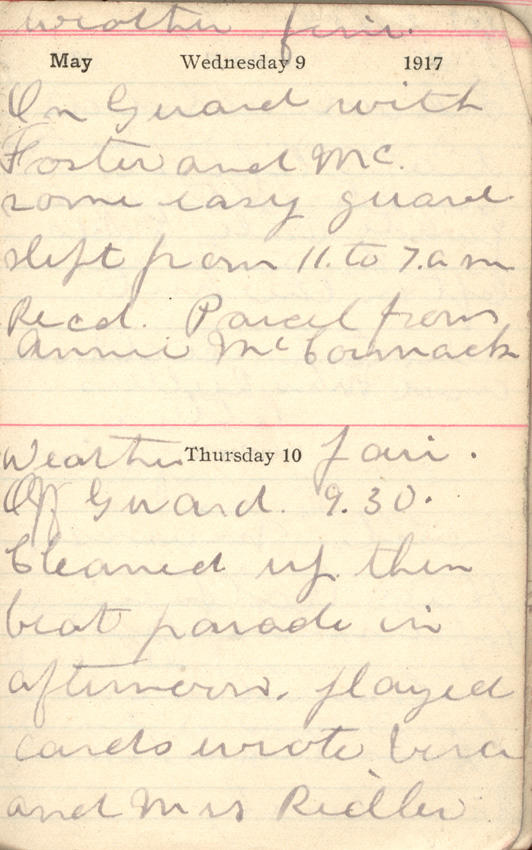 weather fair.
May Wednesday 9 1917
On Guard with
Foster and Mc.
some easy guard
slept from 11. to 7. a m
Recd. Parcel from
Annie McCormack
Weather Thursday 10 Fair.
Off Guard. 9.30.
Cleaned up then
beat parade in
afternoon. played
cards wrote Vera
and Mrs Ridler